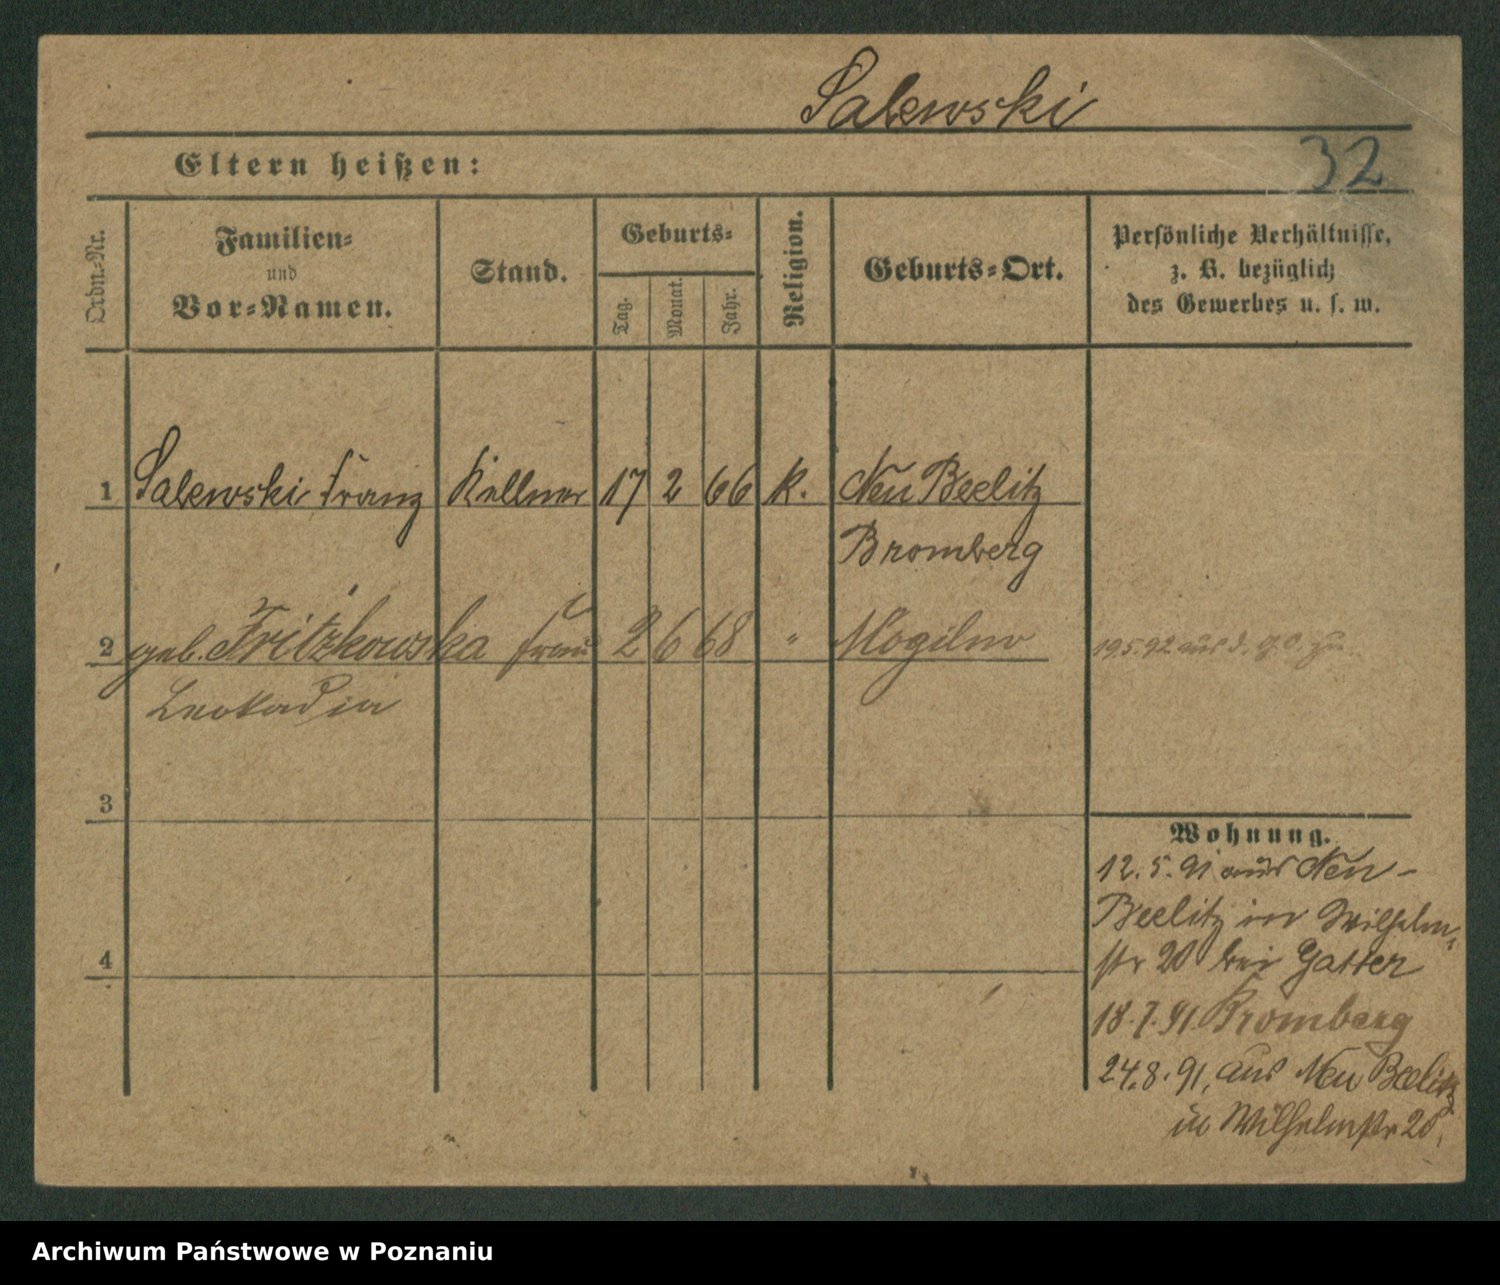 Salewski
32
Eltern heißen:
Ordn.-Nr.
Familien-
und
Vor-Namen.
Stand.
Geburts-
Tag.
Monat.
Jahr.
Religion.
Geburts-Ort.
Persönliche Verhältnisse,
z. B. bezüglich
des Gewerbes u. s. w.
1 Salewski Franz Kellner 17 2 66 k. Neu Beelitz
Bromberg
2 geb. Fritzkowska Frau 2 6 68 " Mogilno 19.5.92 aus d. zu
Leokadia
3
Wohnung.
12.5.91 aus Neu-
Beelitz in Wilhelm-
str 20 bei Gatter
4
18.7.91 Bromberg
24.8.91, aus Neu Beelitz
in Wilhelmstr 20,
Archiwum Państwowe w Poznaniu